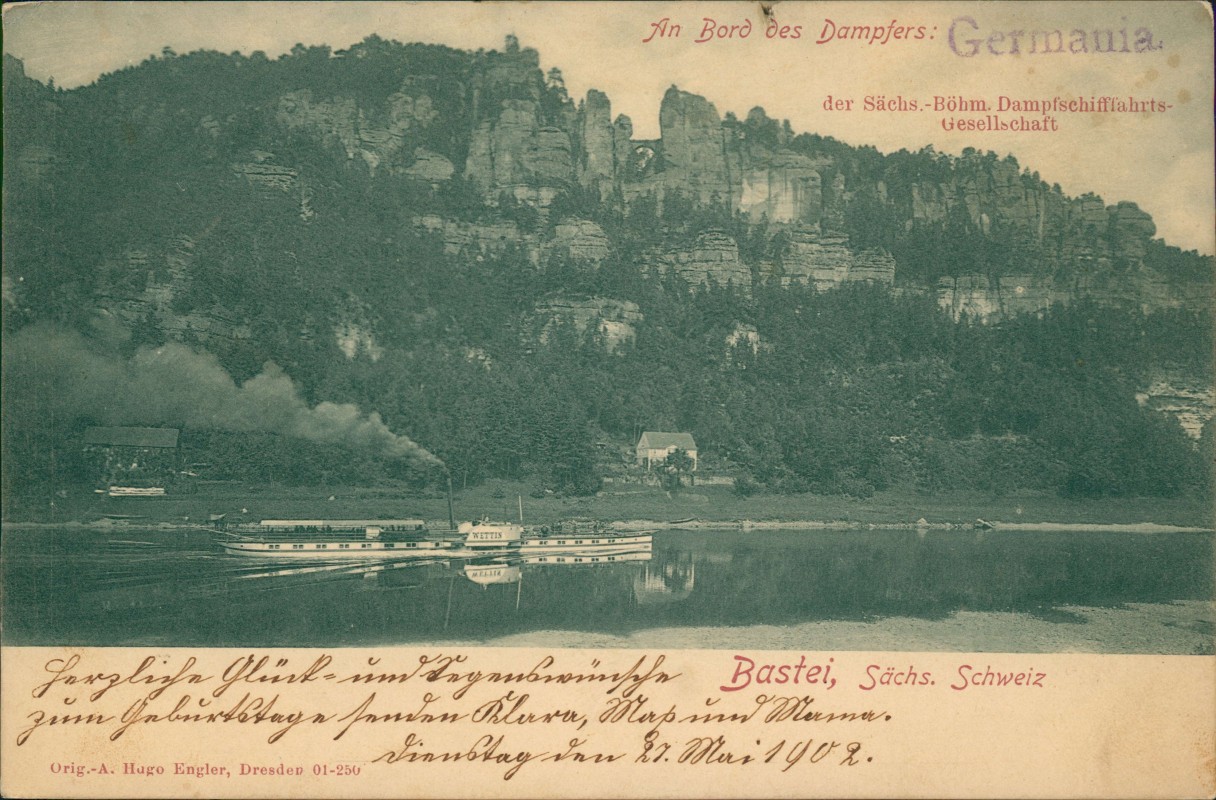 An Bord des Dampfers: Germania.
der Sächs.-Böhm. Dampfschifffahrts-
Gesellschaft
WETTIN
Bastei, Sächs. Schweiz
Herzliche Glück- und Segenswünsche
zum Geburtstage senden Klara, und Mama.
Dienstag den 27. Mai 1902.
Orig.-A. Hugo Engler, Dresden 01-250